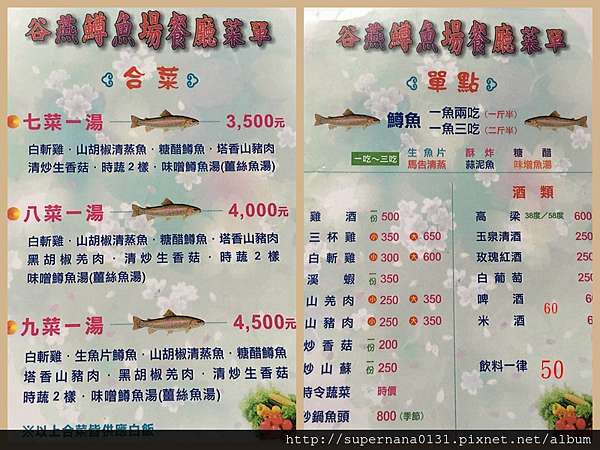 谷燕鱒魚場餐廳菜單
合菜
七菜一湯 3,500元
白斬雞‧山胡椒清蒸魚‧糖醋鱒魚‧塔香山豬肉
清炒生香菇‧時蔬2樣‧味噌鱒魚湯(薑絲魚湯)
八菜一湯 4,000元
白斬雞‧山胡椒清蒸魚‧糖醋鱒魚‧塔香山豬肉
黑胡椒羌肉‧清炒生香菇‧時蔬2樣
味噌鱒魚湯(薑絲魚湯)
九菜一湯 4,500元
白斬雞‧生魚片鱒魚‧山胡椒清蒸魚‧糖醋鱒魚
塔香山豬肉‧黑胡椒羌肉‧清炒生香菇
時蔬2樣‧味噌鱒魚湯(薑絲魚湯)
※以上合菜皆供應白飯
谷燕鱒魚場餐廳菜單
單點
鱒魚 一魚兩吃(一斤半)
一魚三吃(二斤半)
一吃~三吃 生魚片 酥炸 糖醋
馬告清蒸 蒜泥魚 味噌魚湯
雞酒 一份 500
三杯雞 小 350 大 650
白斬雞 小 300 大 600
溪蝦 一份 350
山羌肉 小 250 大 350
山豬肉 小 250 大 350
炒香菇 一份 200
炒山蘇 一份 250
時令蔬菜 時價
沙鍋魚頭 800(季節)
酒類
高粱 38度/58度 600
玉泉清酒 250
玫瑰紅酒 250
白葡萄 250
啤酒 60
米酒
飲料一律 50
http://supernana0131.pixnet.net/album